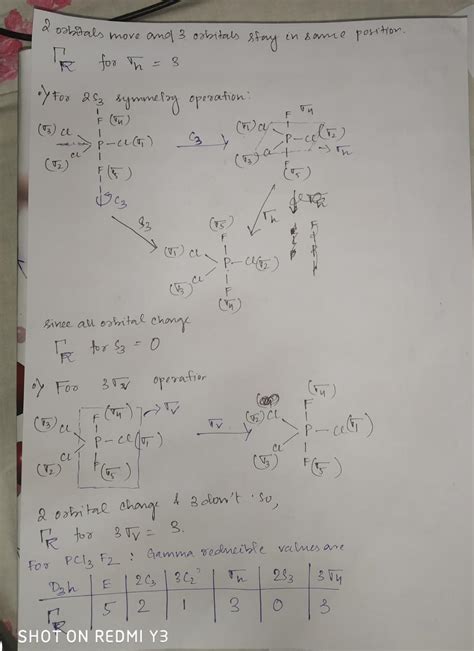 2 orbitals move and 3 orbitals stay in same position.
Γ_R for σh = 3
•) For 2S3 symmetry operation:
F (σ4)
(σ3) Cl
P - Cl (σ1)
(σ2) Cl
F (σ5)
C3
C3
F (σ4)
(σ1) Cl
P - Cl (σ2)
(σ3) Cl
F (σ5)
σh
S3
σh
F (σ5)
(σ1) Cl
P - Cl (σ2)
(σ3) Cl
F (σ4)
since all orbital change
Γ_R for S3 = 0
•) For 3σv operation
F (σ4)
(σ3) Cl
P - Cl (σ1)
(σ2) Cl
(σ5)
σv
σv
F (σ4)
(σ2) Cl
P - Cl (σ1)
(σ3) Cl
F (σ5)
2 orbital change & 3 don't. So,
Γ_R for 3σv = 3.
For PCl3F2 : Gamma reducible values are
D3h | E | 2C3 | 3C2' | σh | 2S3 | 3σv
Γ_R | 5 | 2 | 1 | 3 | 0 | 3
SHOT ON REDMI Y3